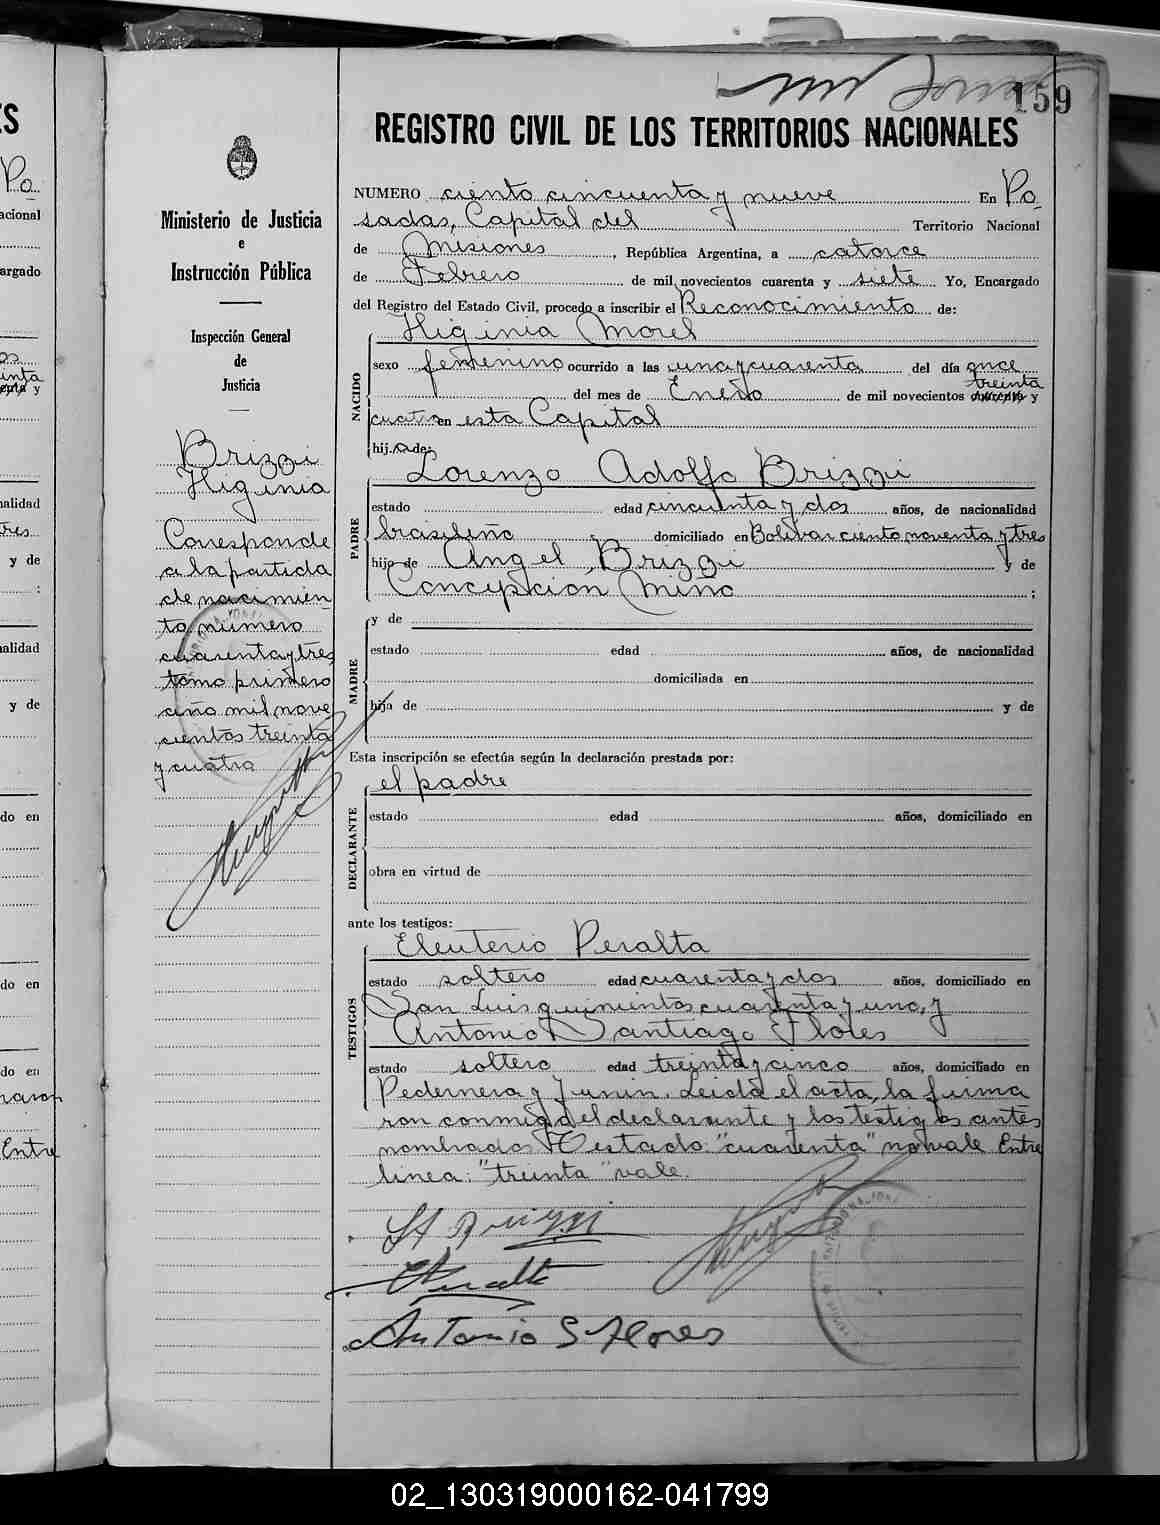 159
REGISTRO CIVIL DE LOS TERRITORIOS NACIONALES
Ministerio de Justicia
e
Instrucción Pública
Inspección General
de
Justicia
Brizzi
Higinia
Corresponde
a la partida
de nacimien
to número
cuarenta y tres
tomo primero
año mil nove
cientos treinta
y cuatro
NUMERO ciento cincuenta y nueve En Po
sadas, Capital del Territorio Nacional
de Misiones, República Argentina, a catorce
de Febrero de mil novecientos cuarenta y siete Yo, Encargado
del Registro del Estado Civil, procedo a inscribir el Reconocimiento de:
Higinia Morel
NACIDO
sexo femenino ocurrido a las una y cuarenta del día once
treinta
del mes de Enero de mil novecientos cuarenta y
cuatro en esta Capital
hij.a de:
Lorenzo Adolfo Brizzi
PADRE
estado edad cincuenta y dos años, de nacionalidad
brasileño domiciliado en Bolívar ciento noventa y tres
hijo de Angel Brizzi y de
Concepcion Miño ;
MADRE
y de
estado edad años, de nacionalidad
domiciliada en
hija de y de
Esta inscripción se efectúa según la declaración prestada por:
el padre
DECLARANTE
estado edad años, domiciliado en
obra en virtud de
ante los testigos:
Eleuterio Peralta
TESTIGOS
estado soltero edad cuarenta y dos años, domiciliado en
San Luis quinientos cuarenta y uno, y
Antonio Santiago Flores
estado soltero edad treinta y cinco años, domiciliado en
Pedernera y Junin. Leida el acta, la firma
ron conmigo el declarante y los testigos antes
nombrados. Testado: "cuarenta" no vale. Entre
linea: "treinta" vale.
Brizzi
EPeralta
Antonio S Flores
02_130319000162-041799